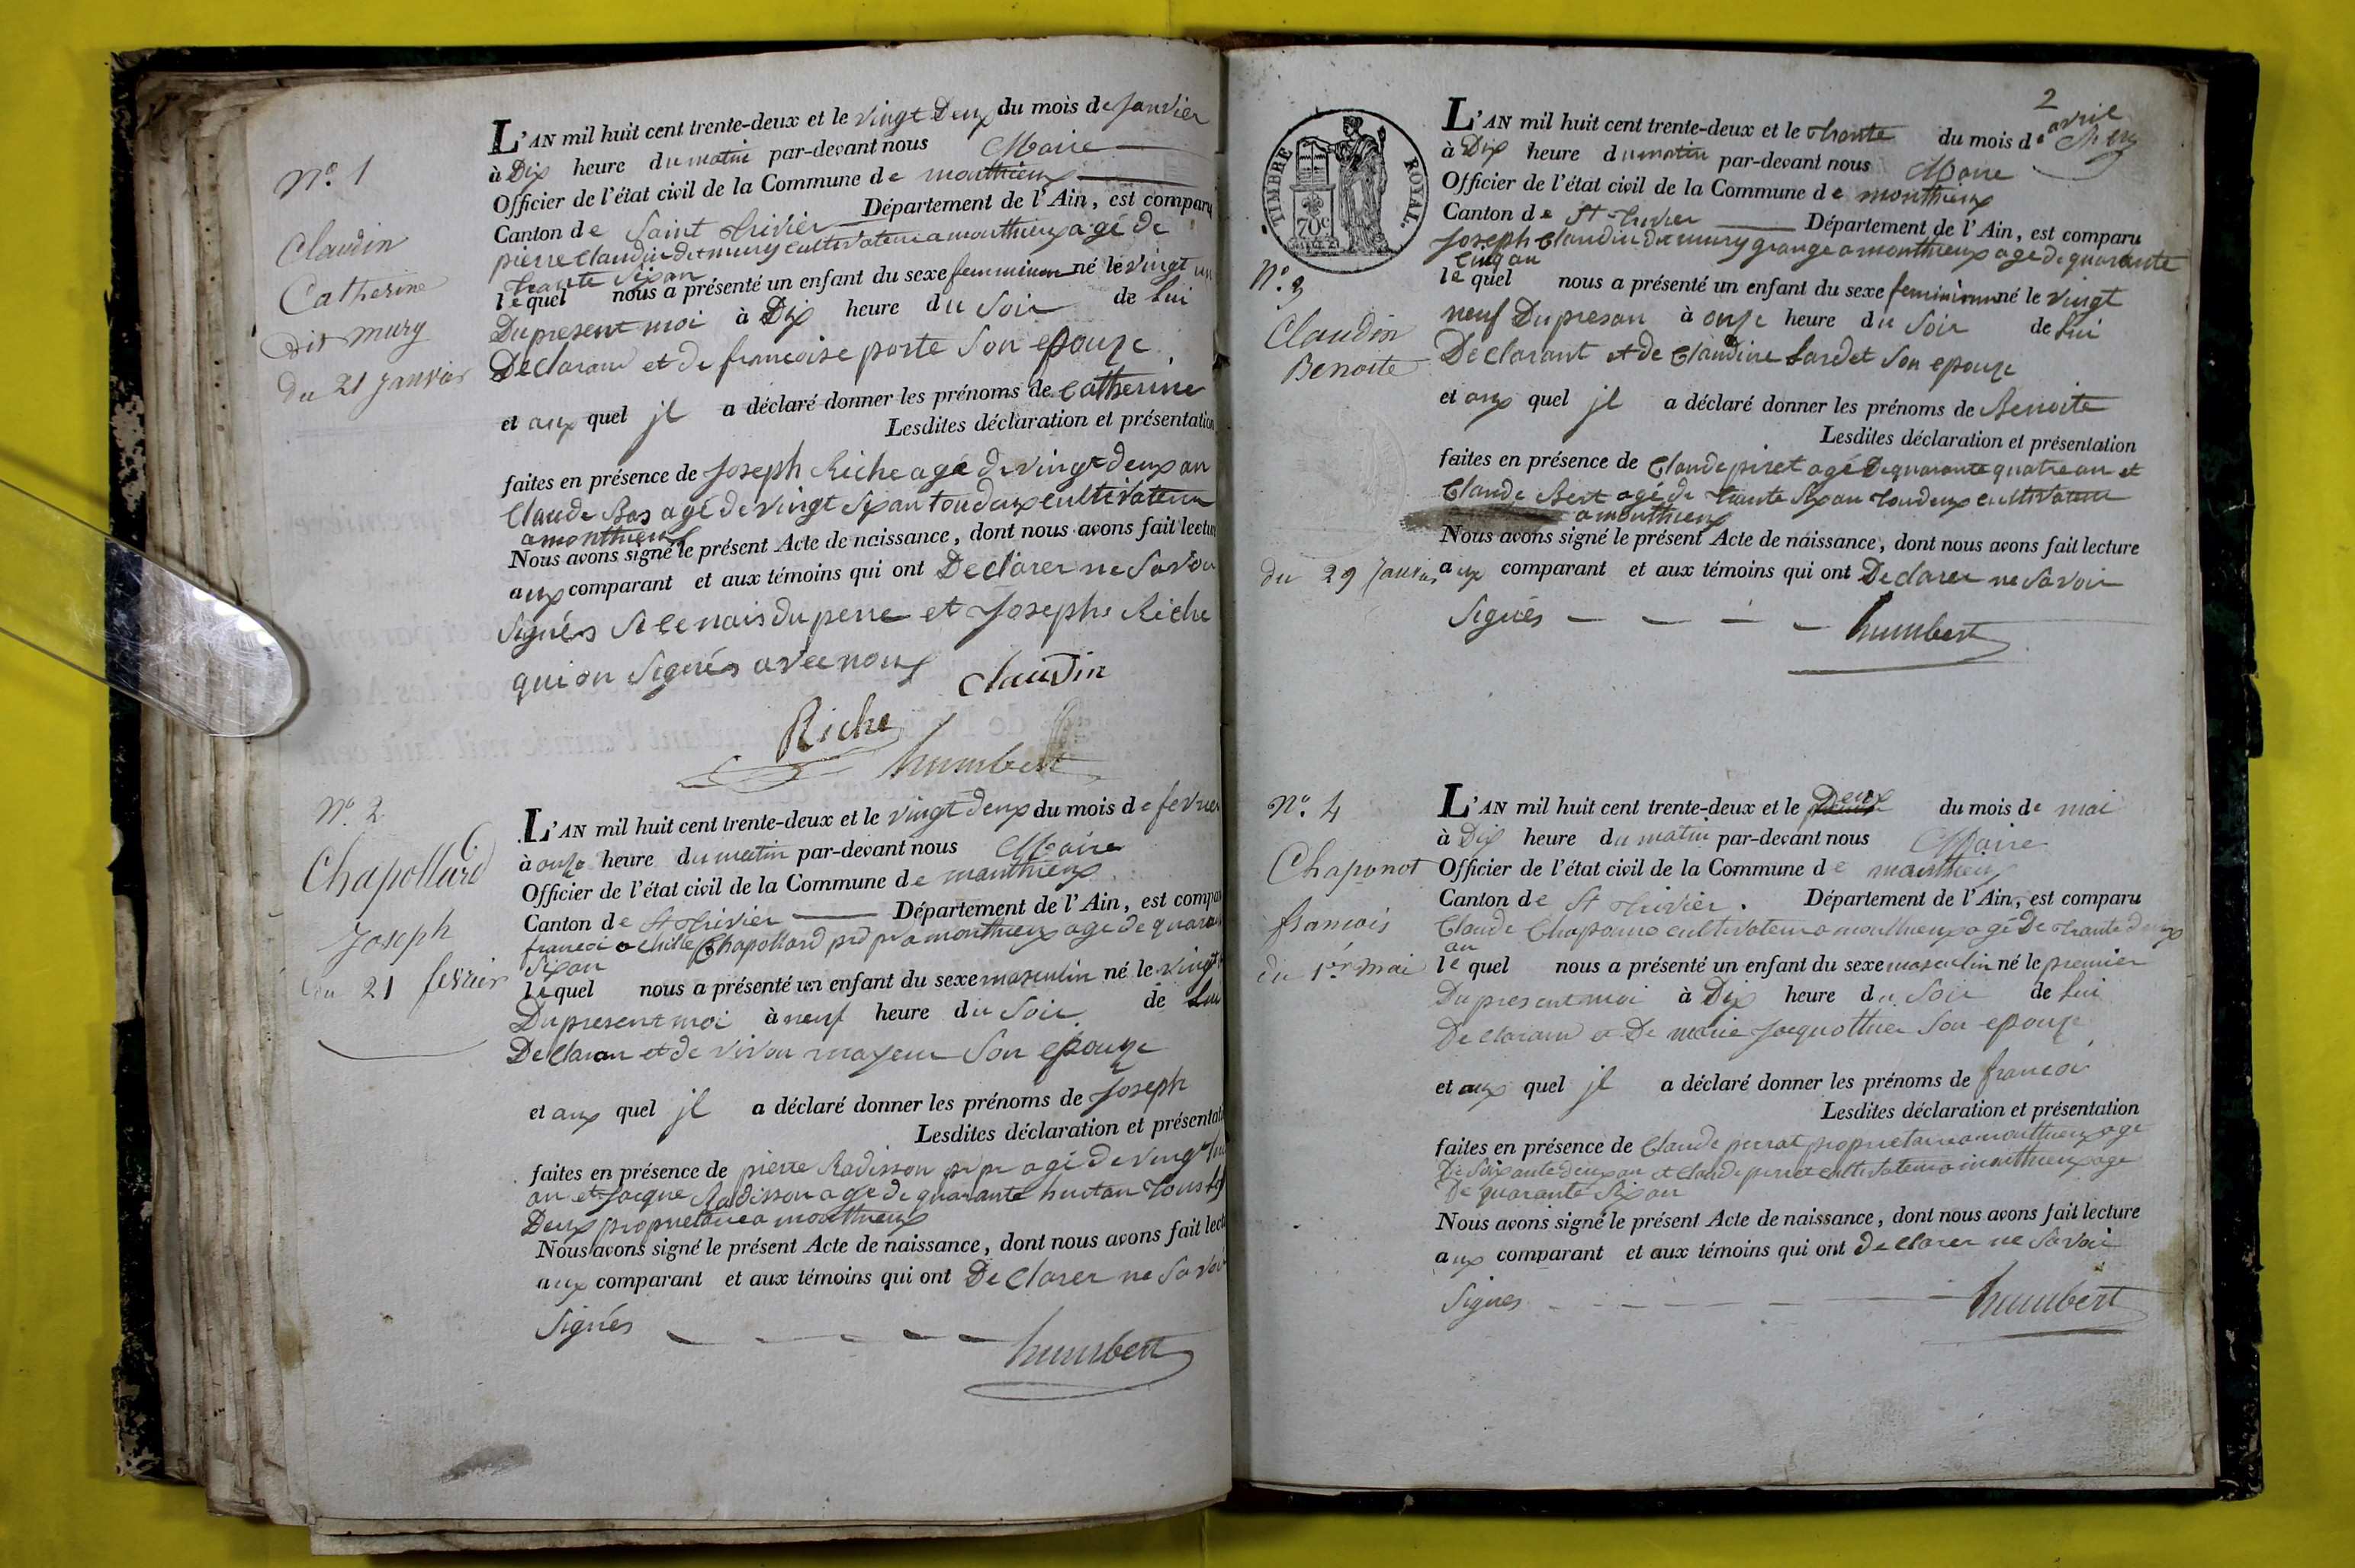 N.º 1
Claudin
Catherine
dit mury
du 21 janvier
L'AN mil huit cent trente-deux et le vingt Deux du mois de janvier
à Dix heure du matin par-devant nous Maire
Officier de l'état civil de la Commune de monthieux
Canton de Saint trivier Département de l'Ain, est comparu
pierre Claudin dit mury cultivateur a monthieux agé de
trante Six an
lequel nous a présenté un enfant du sexe feminimn né le vingt un
Du present moi à Dix heure du Soir de lui
Declarant et de francoise porte Son epouze
et aux quel jl a déclaré donner les prénoms de Catherine
Lesdites déclaration et présentation
faites en présence de Joseph Riche agé de vingt deux an
Claude Bas agé de vingt Six an tou deux cultivateur
a monthieux
Nous avons signé le présent Acte de naissance, dont nous avons fait lecture
aux comparant et aux témoins qui ont Declarer ne Savoir
Signés Si ce nais du perre et Josephe Riche
qui on Signés avec nous Claudin
Riche
humbert
N.º 2
Chapollard
Joseph
du 21 fevrier
L'AN mil huit cent trente-deux et le vingt deux du mois de fevrier
à onze heure du matin par-devant nous Maire
Officier de l'état civil de la Commune de monthieux
Canton de St trivier Département de l'Ain, est comparu
francoi achille Chapollard prd pr a monthieux agé de quarante
Six an
lequel nous a présenté un enfant du sexe masculin né le vingt
Du present moi à neuf heure du Soir de lui
Declaran et de vivan mayeur Son epouze
et aux quel jl a déclaré donner les prénoms de Joseph
Lesdites déclaration et présentation
faites en présence de pierre Radisson pr pr agé de vingt
an et Jacque Radisson agé de quarante huit an tous les
Deux proprietaire a monthieux
Nous avons signé le présent Acte de naissance, dont nous avons fait lecture
aux comparant et aux témoins qui ont Declarer ne Savoir
Signés
humbert
2
TIMBRE ROYAL.
70c
N.º 3
Claudin
Benoite
du 29 Janvier
L'AN mil huit cent trente-deux et le trante du mois de avril
à Dix heure du matin par-devant nous Maire
Officier de l'état civil de la Commune de monthieux
Canton de St trivier Département de l'Ain, est comparu
Joseph Claudin dit mury grange a monthieux age de quarante
cinq an
lequel nous a présenté un enfant du sexe feminimn né le vingt
neuf Du presan à onze heure du Soir de lui
Declarant et de Claudine Lardet Son epouze
et aux quel jl a déclaré donner les prénoms de Benoite
Lesdites déclaration et présentation
faites en présence de Claude piret agé De quarante quatre an et
Claude Bert agé de trante Six an tou deux cultivateur
a monthieux
Nous avons signé le présent Acte de naissance, dont nous avons fait lecture
aux comparant et aux témoins qui ont Declarer ne Savoir
Signés humbert
N.º 4
Chaponot
francois
du 1er mai
L'AN mil huit cent trente-deux et le Deux du mois de mai
à Dix heure du matin par-devant nous Maire
Officier de l'état civil de la Commune de monthieux
Canton de St trivier. Département de l'Ain, est comparu
Claude Chaponno cultivateur a monthieux agé De trante deux
an
lequel nous a présenté un enfant du sexe masculin né le premier
Du present moi à Dix heure du Soir de lui
Declarant et De marie Jacquothier Son epouze
et aux quel jl a déclaré donner les prénoms de francoi
Lesdites déclaration et présentation
faites en présence de Claude perrat proprietaire a monthieux age
De Soixante deux an et Claude perrat cultivateur a monthieux age
De quarante Six an
Nous avons signé le présent Acte de naissance, dont nous avons fait lecture
aux comparant et aux témoins qui ont declarer ne Savoir
Signes humbert